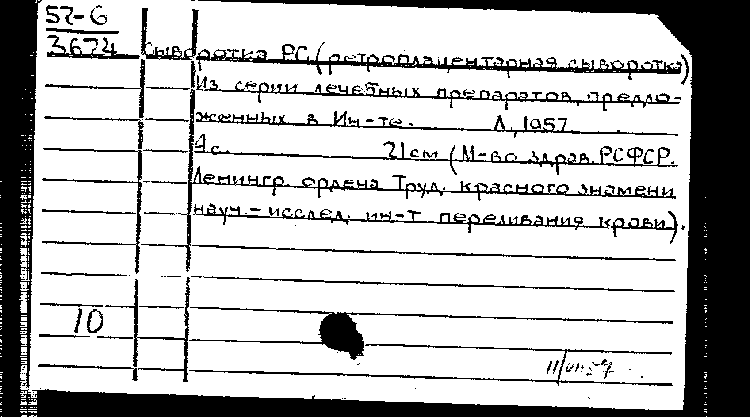 57-6
3674 Сыворотка РС (ретроплацентарная сыворотка)
Из серии лечебных препаратов, предло-
женных в Ин-те. Л, 1957.
4с. 21см (М-во здрав. РСФСР.
Ленингр. ордена Труд. красного знамени
науч.-исслед. ин-т переливания крови).
10